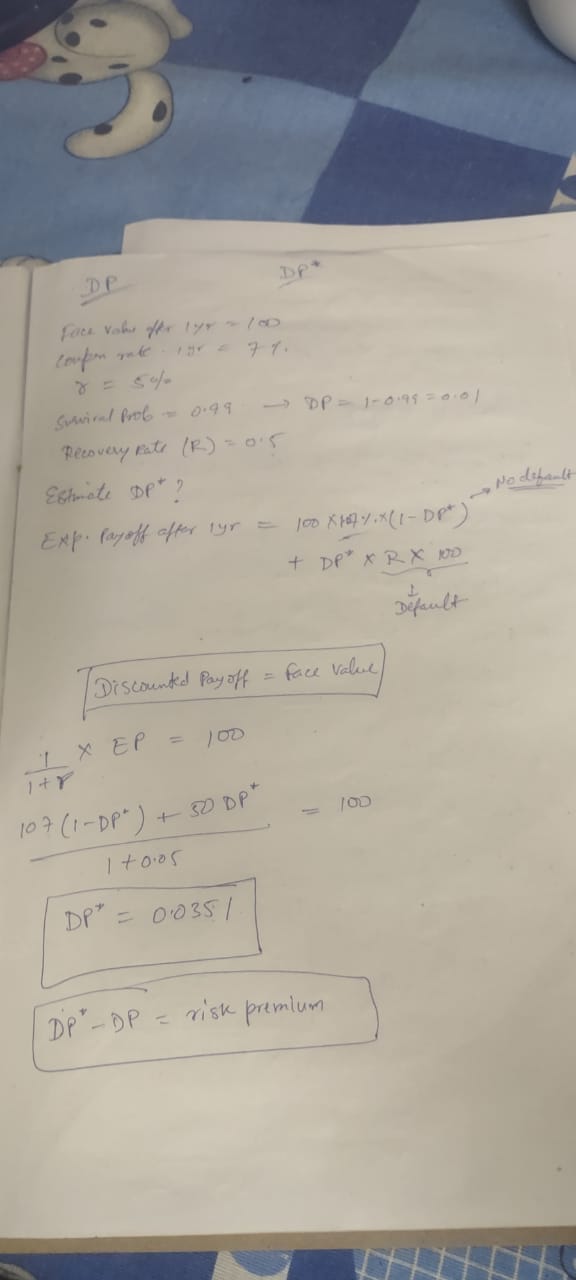 DP DP*
Face value after 1yr = 100
Coupon rate - 1yr = 7%.
r = 5%
Survival Prob = 0.99 → DP = 1-0.99 = 0.01
Recovery Rate (R) = 0.5
Estimate DP* ?
Exp. Payoff after 1yr = 100 X 107%. X (1-DP*) → No default
+ DP* X R X 100
↓
Default
Discounted Payoff = Face Value
1/1+r X EP = 100
107(1-DP*) + 50 DP* / 1+0.05 = 100
DP* = 0.0351
DP* - DP = risk premium